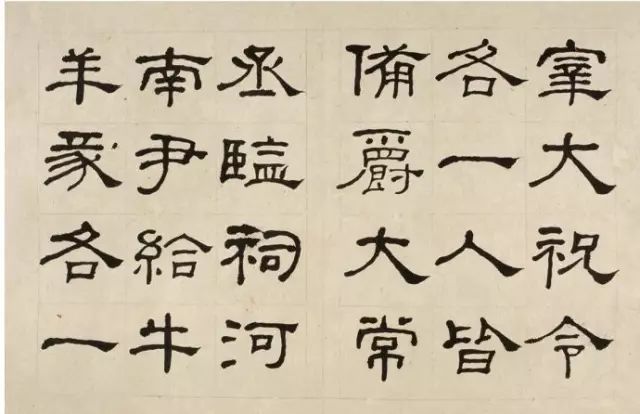 宰大祝令
各一人皆
備爵大常
丞監祠河
南尹給牛
羊豕各一